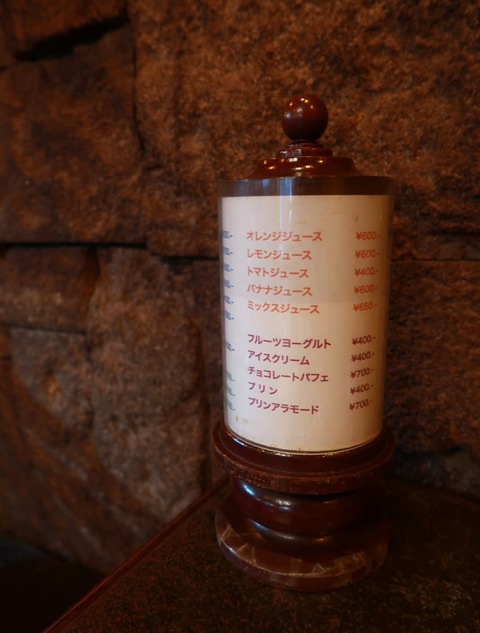 オレンジジュース ¥600.-
レモンジュース ¥600.-
トマトジュース ¥400.-
バナナジュース ¥600.-
ミックスジュース ¥650.-
フルーツヨーグルト ¥400.-
アイスクリーム ¥400.-
チョコレートパフェ ¥700.-
プリン ¥400.-
プリンアラモード ¥700.-